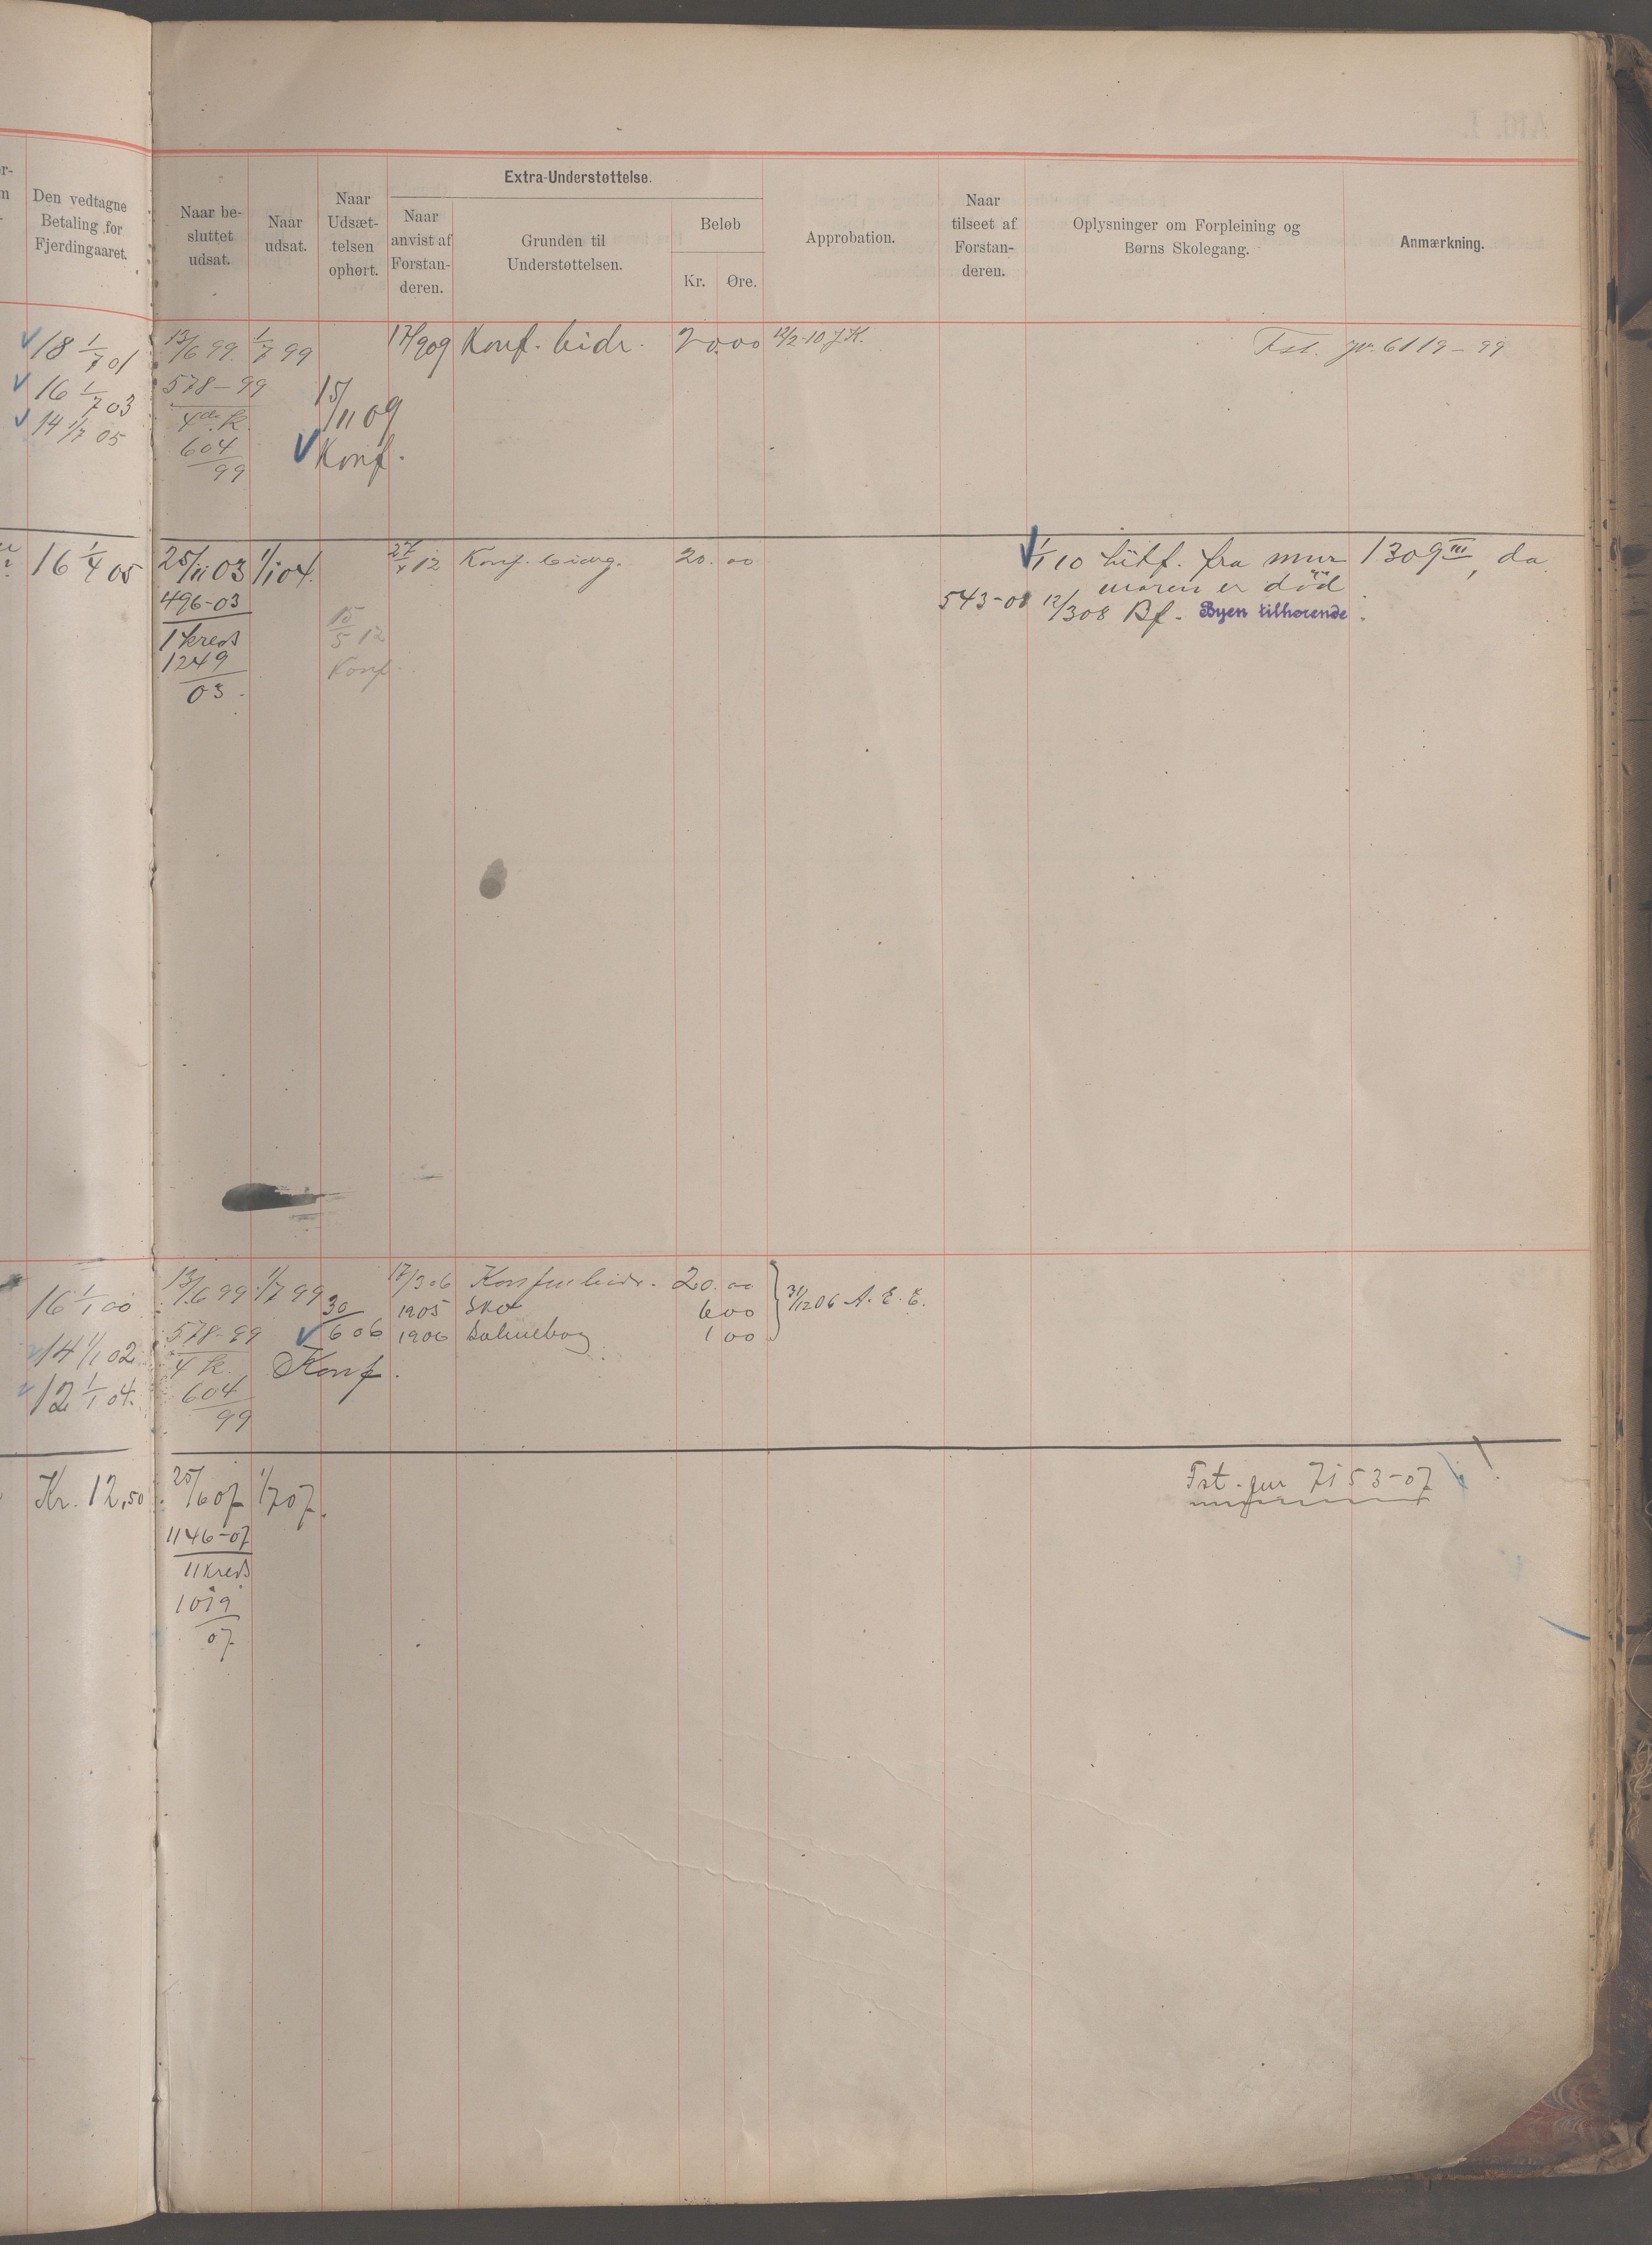 Den vedtagne
Betaling for
Fjerdingaaret.
Naar be-
sluttet
udsat.
Naar
udsat.
Naar
Udsæt-
telsen
ophørt.
Extra-Understøttelse.
Naar
anvist af
Forstan-
deren.
Grunden til
Understøttelsen.
Beløb
Kr. Øre.
Approbation.
Naar
tilseet af
Forstan-
deren.
Oplysninger om Forpleining og
Børns Skolegang.
Anmærkning.
18 1/7 01
16 1/7 03
14 1/7 05
13/6 99. 1/7 99
578-99
4de K.
604
99
15/11 09
Konf.
17/909 Konf. bidr. 20.00 12/2-10 J.K.
Fst. jr. 6119-99
16 1/4 05
25/11 03 1/1 04.
496-03
1 kreds
1249
03.
15/5 12
Konf.
27/x 12 Konf. bidrg. 20.00
1/1 10 fra mur 1309III, da
moren er död
543-08 12/308 Bf. Byen tilhørende.
16 1/1 00
14 1/1 02
12 1/1 04.
13/6 99 1/7 99
578-99
4 K.
604
99
30/6 06
Konf.
17/306 Konfm bidr. 20.00
1905 Sko 6 00
1906 Salmebog 1 00
31/12 06 A. E. E.
Kr. 12,50
25/6 07 1/7 07.
1146-07
11 kreds
1019
07
Fst. jur 7153-07